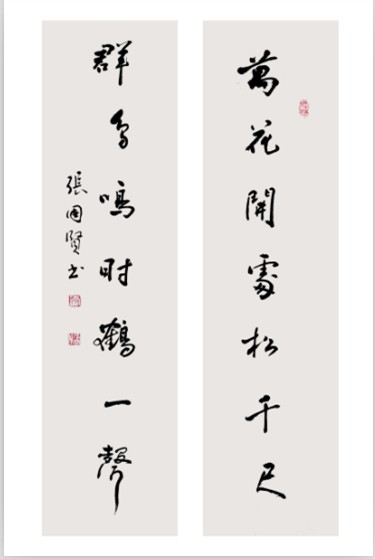 萬花開處松千尺
群鳥鳴時鶴一聲
張國賢书